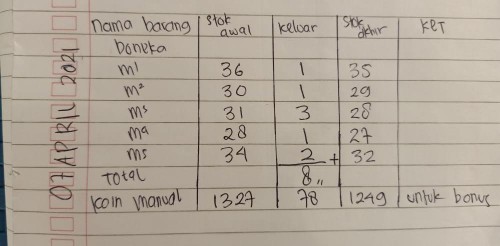 07 APRIL 2021
nama barang stok awal keluar stok akhir KET
boneka
m1 36 1 35
m2 30 1 29
m3 31 3 28
m4 28 1 27
m5 34 2 + 32
Total 8,,
koin manual 1327 78 1249 untuk bonus